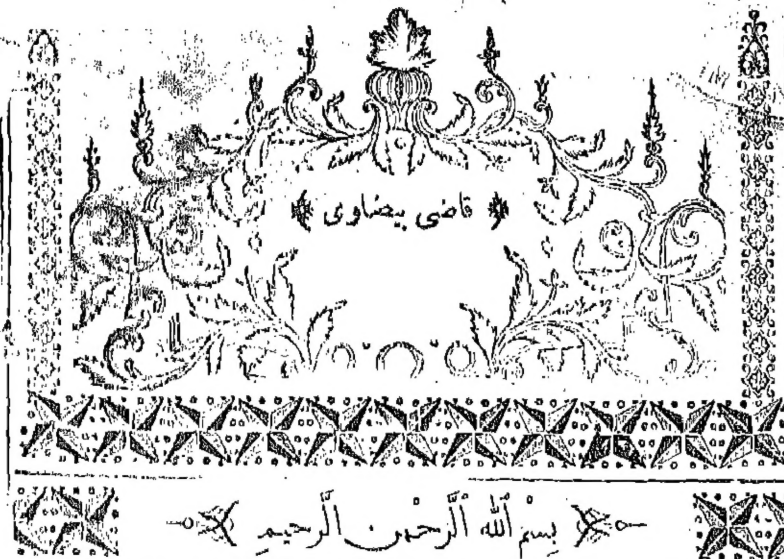 قاضى بيضاوى
بِسْمِ ٱللّٰهِ ٱلرَّحْمٰنِ ٱلرَّحِيمِ